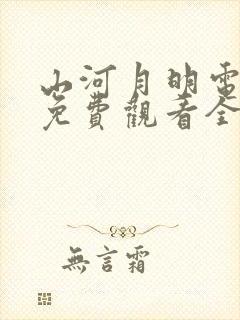 山河月明電
免費觀看全
無言霜